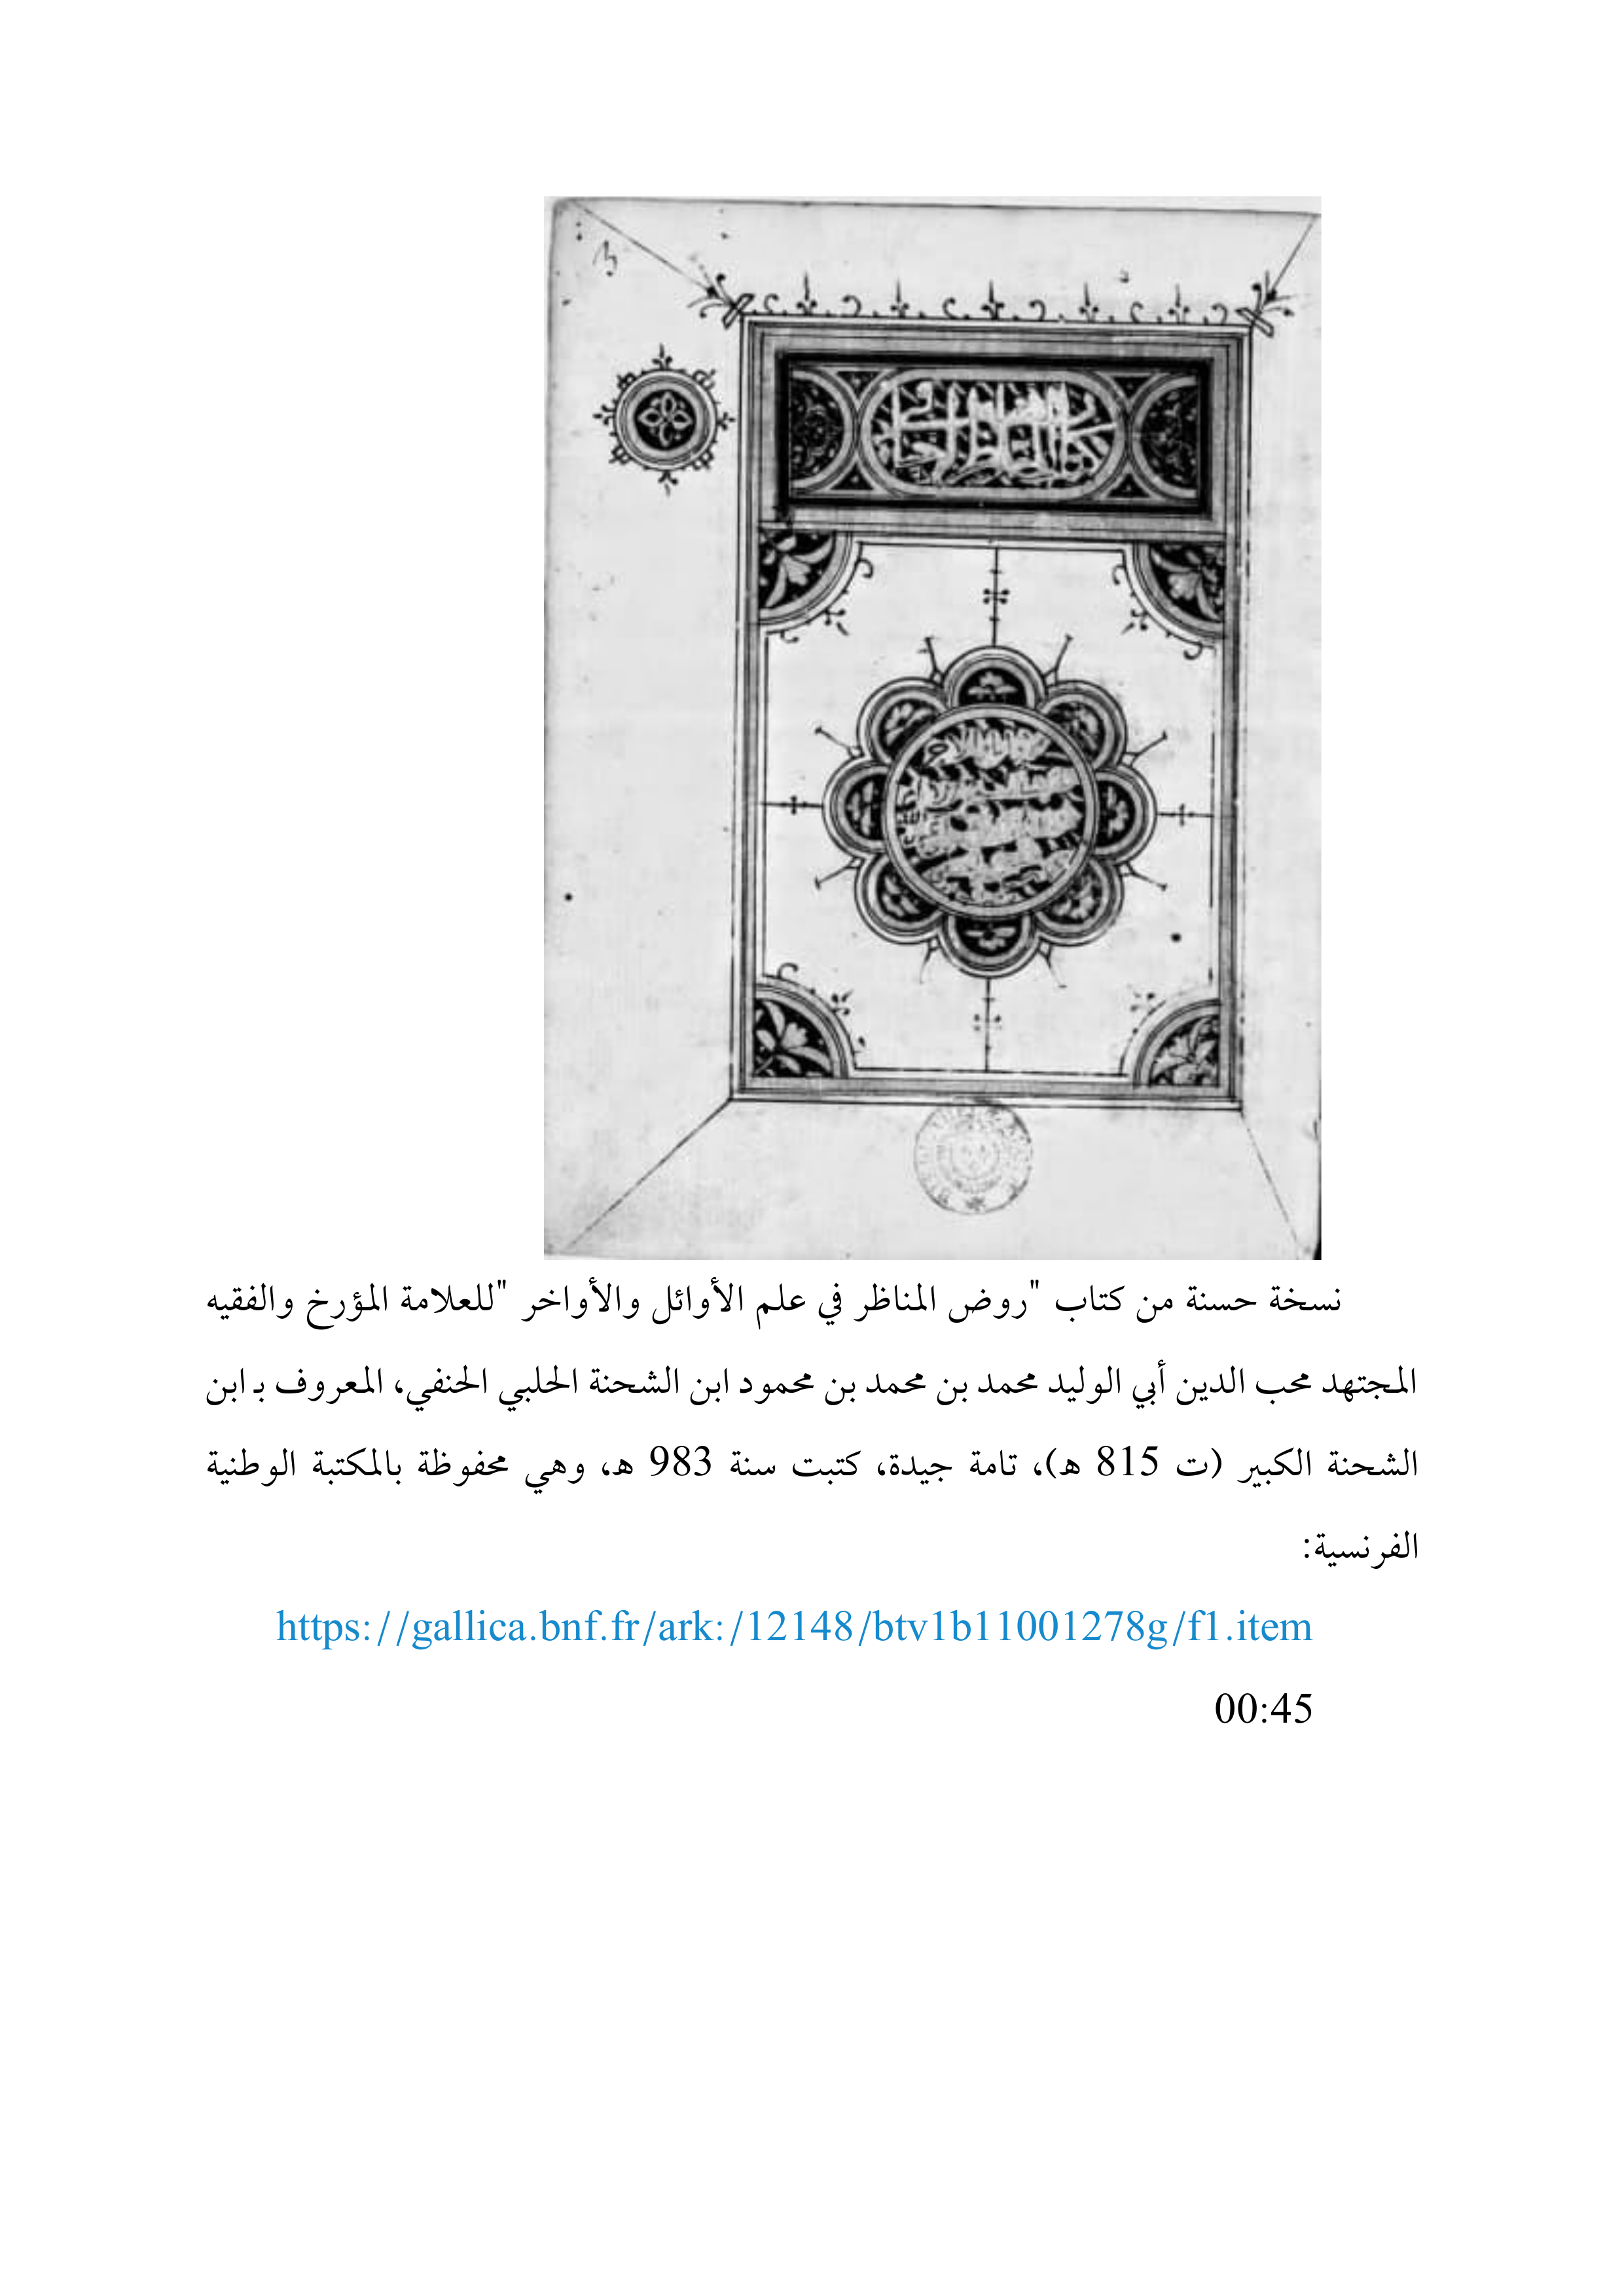 نسخة حسنة من كتاب "روض المناظر في علم الأوائل والأواخر "للعلامة المؤرخ والفقيه
المجتهد محب الدين أبي الوليد محمد بن محمد بن محمود ابن الشحنة الحلبي الحنفي، المعروف بـ ابن
الشحنة الكبير (ت 815 هـ)، تامة جيدة، كتبت سنة 983 هـ، وهي محفوظة بالمكتبة الوطنية
الفرنسية:
https://gallica.bnf.fr/ark:/12148/btv1b11001278g/f1.item
00:45